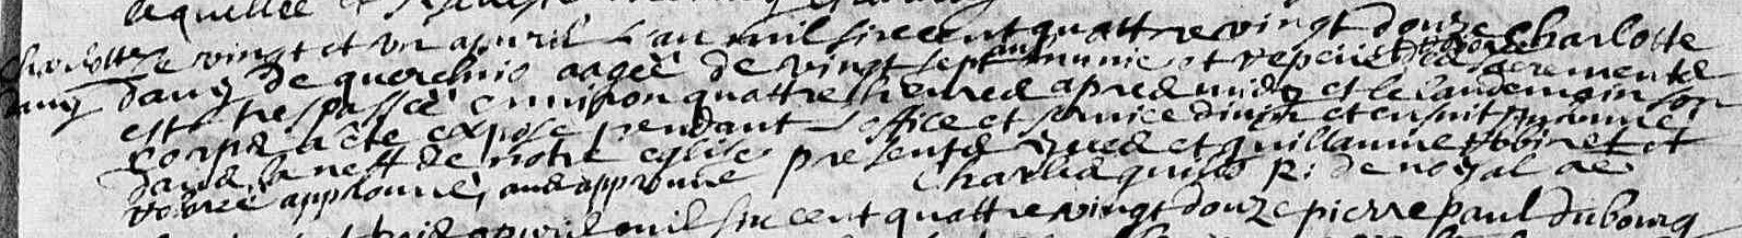 Charlotte Le vingt et un apvril l'an mil six cent quattre vingt douze Charlotte
dany dany de querchuis aagée de vingt sept ans munie et repeue des sacrements
est trespassée environ quattre heures apres midy et le landemain son
corps a été exposé pendant l'office et service divin et ensuit inhumé
dans la neff de notre eglise presents yves et guillaume Robinet et
approuvé, ans approuvé Charles R: de noyal
apvril mil six cent quattre vingt douze pierre paul dubourg